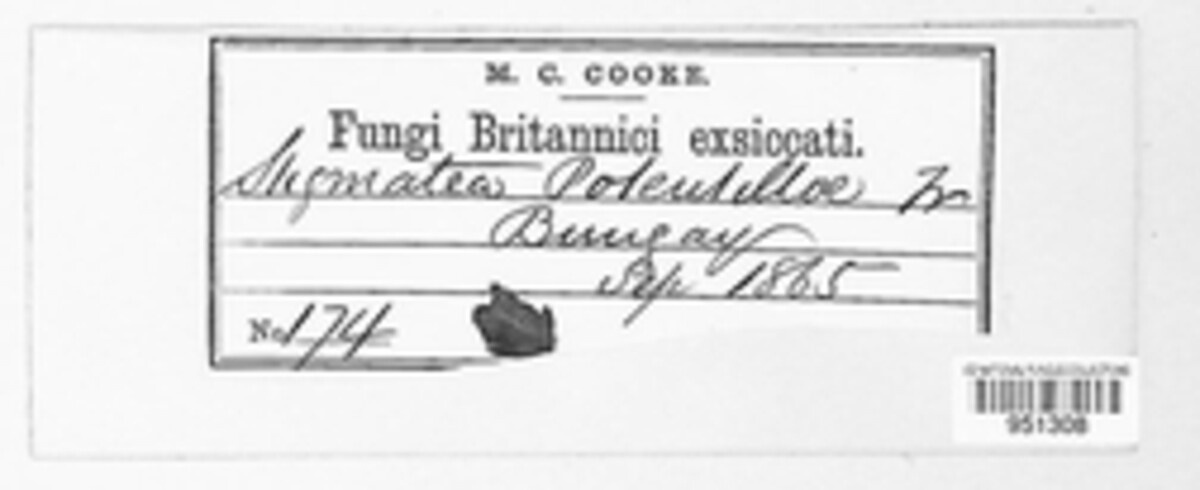 M. C. COOKE.
Fungi Britannici exsiccati.
Stigmatea Potentillae Fr
Bungay
Sep 1865
No 174
951308